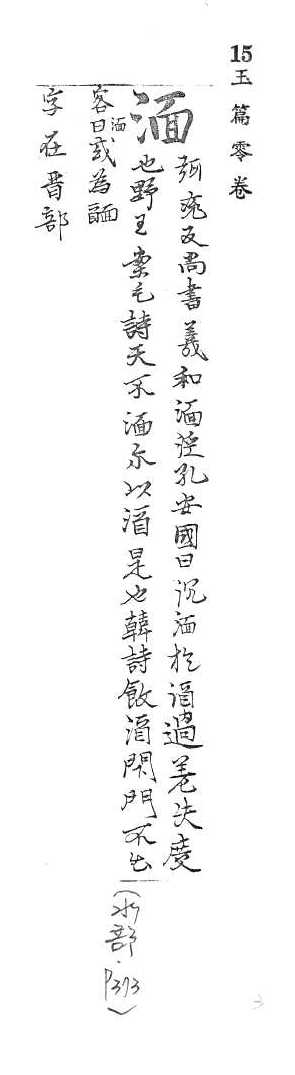 15玉篇零卷
湎
弥兖反尚書羲和湎淫孔安國曰沉湎於酒過差失度
也野王案毛詩天不湎尒以酒是也韓詩飲酒閇門不出
客曰湎或為
字在晋部
(水部·P373)